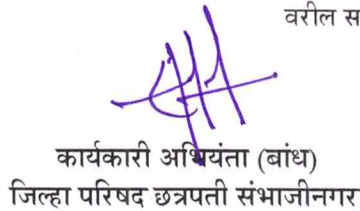 वरील स
कार्यकारी अभियंता (बांध)
जिल्हा परिषद छत्रपती संभाजीनगर